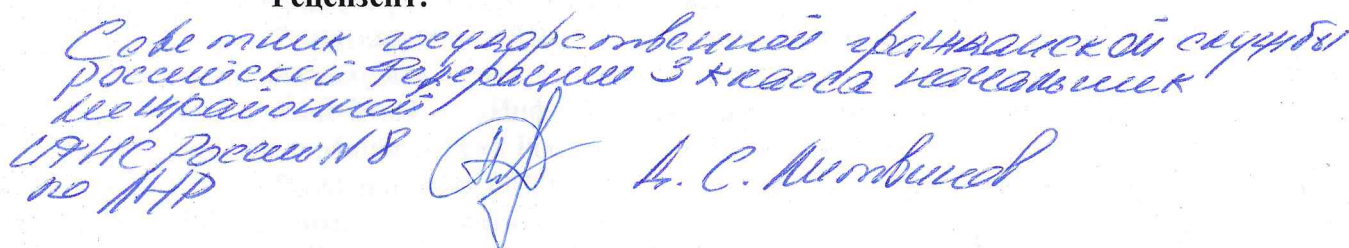 Рецензент:
Советник государственной гражданской службы
Российской Федерации 3 класса начальник
межрайонной
ИФНС России N 8
по ЛНР
Д. С. Литвинов